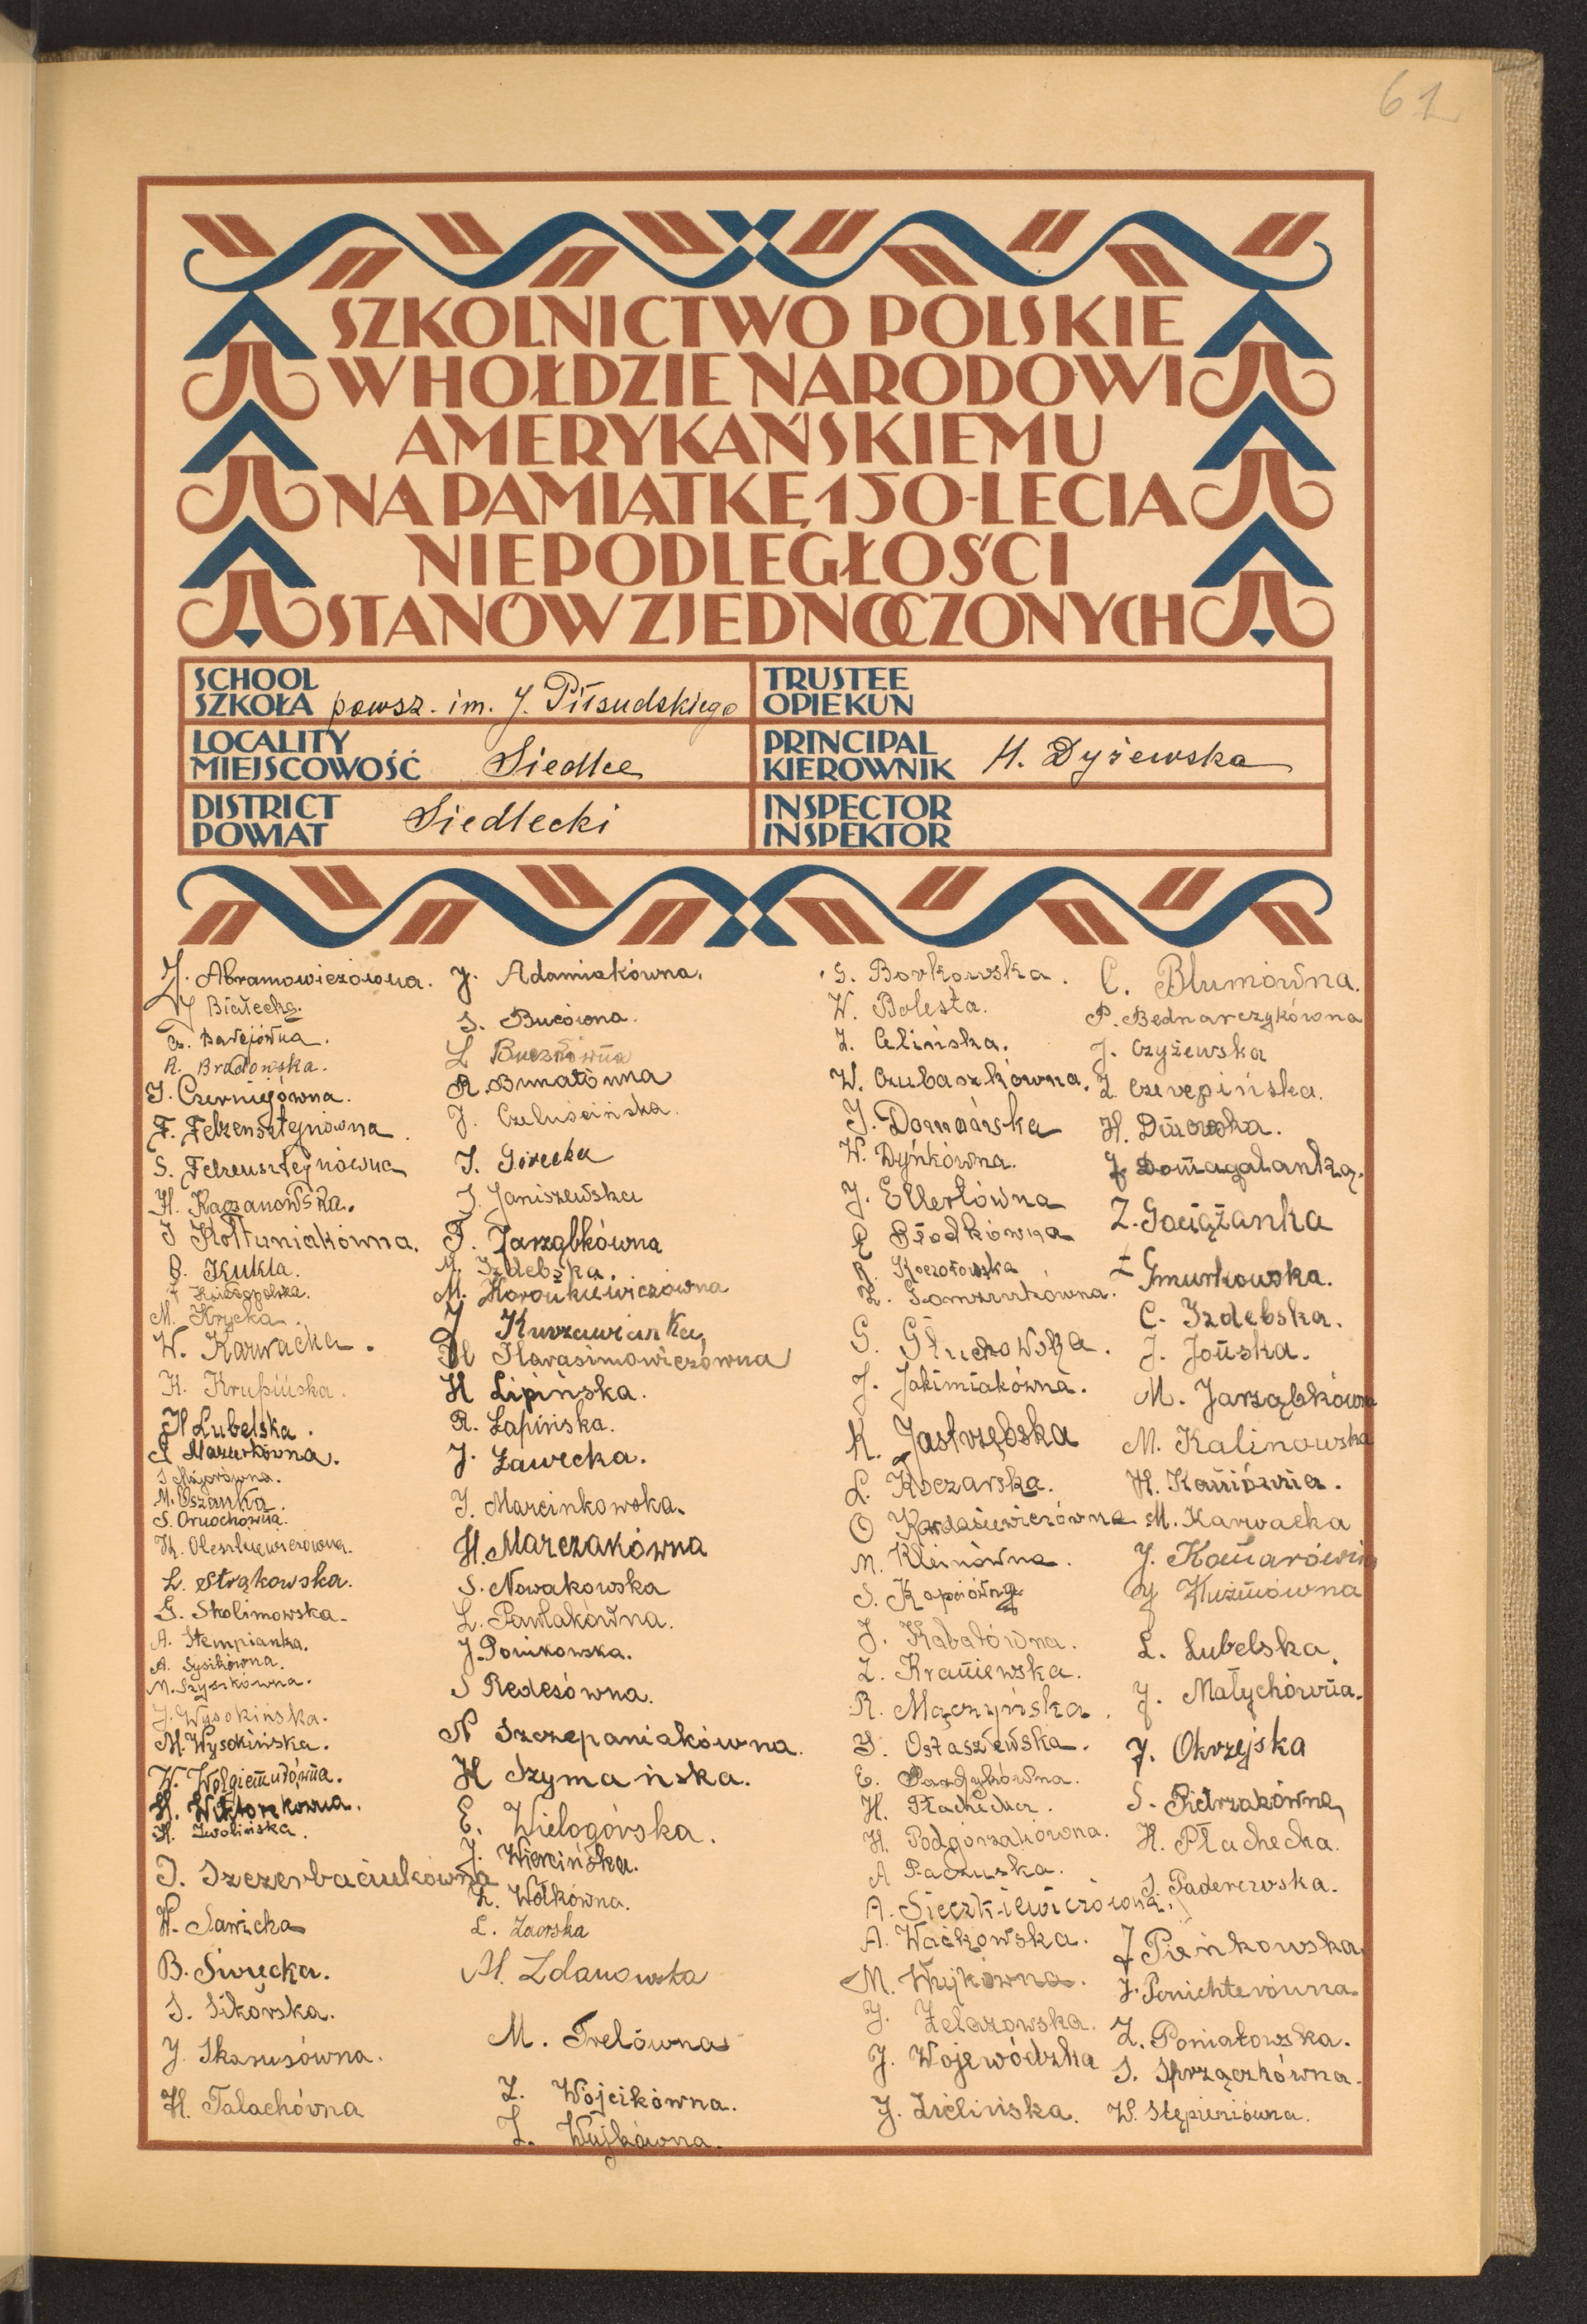 61
SZKOLNICTWO POLSKIE
W HOŁDZIE NARODOWI
AMERYKAŃSKIEMU
NA PAMIĄTKĘ 150-LECIA
NIEPODLEGŁOŚCI
STANÓW ZJEDNOCZONYCH
SCHOOL
SZKOŁA powsz. im. J. Piłsudskiego
TRUSTEE
OPIEKUN
LOCALITY
MIEJSCOWOŚĆ Siedlce
PRINCIPAL
KIEROWNIK H. Dyżewska
DISTRICT
POWIAT Siedlecki
INSPECTOR
INSPEKTOR
J. Abramowiczówna.
J Białecka.
R. Brodowska.
J. Czerniejówna.
F. Felzensztejnówna.
S. Felzensztejnówna
H. Kaczanowska.
J Kołtuniakówna.
B. Kukla.
M. Krycka.
W. Karwacka.
K. Krupińska.
H Lubelska.
J Mazurkówna.
J Majorówna.
M. Oszanka.
S. Ornochówna.
H. Oleszkiewiczówna.
L. Strąkowska.
G. Skolimowska.
A. Stempianka.
A. Sysikówna.
M. Szyszkówna.
J. Wysokińska.
M. Wysokińska.
W. Wołgiemutówna.
H. Wiktorekówna.
H. Zwolińska.
J. Szczerbaciukówna
W. Sawicka
B. Siwiecka.
S. Sikorska.
J. Skorusówna.
H. Talachówna
J. Adamiakówna.
S. Bucówna.
R. Bunatówna
J. Czeluścińska.
J. Górecka
J. Janiszewska
F. Jarząbkówna
M. Izdebska.
M. Horoukiewiczówna
J Kurzawianka
M Harasimowiczówna
H Lipińska.
R. Łapińska.
J. Ławecka.
J. Marcinkowska.
H. Marczakówna
S. Nowakowska
L. Pawlakówna.
J. Ponikowska.
S Redesówna.
N Szczepaniakówna.
H Szymańska.
E. Wielogórska.
J. Wiercińska.
L. Wołkówna.
L. Zaorska
M. Zdanowska
M. Trelówna
Z. Wójcikówna.
Z. Wujkówna.
S. Borkowska.
W. Bolesta.
Z. Celińska.
W. Czubaszkówna.
J. Domańska
W. Dyńkówna.
J. Ellertówna
R. Koczotowska
Z. Gomzurkówna.
G. Głuchowska.
J. Jakimiakówna.
K. Jastrzębska
L. Koczarska.
O Kardasiewiczówna
M. Kleinówna.
S. Kopciówna
J. Kabatówna.
Z. Kraniewska.
R. Mączyńska.
S. Ostaszewska.
E. Pardykówna.
H. Płachecka.
H. Podgórzakówna.
A Paczuska.
A. Sieczkiewiczówna.
A. Waćkowska.
M. Wujkówna.
J. Żelazowska.
J. Wojewódzka
J. Zielińska.
C. Blumówna.
P. Bednarczykówna
J. Czyżewska
Z. Czerepińska.
H. Durowska.
J Domagalantka.
Z. Gociążanka
Ł Gmurkowska.
C. Izdebska.
J. Jońska.
M. Jarząbkówna
M. Kalinowska
H. Kaniówna.
M. Karwacka
J. Komarówna
J Kuźmówna
L. Lubelska.
J. Małychówna.
J. Okrzejska
S. Pietrzakówna
H. Płachecka.
J. Paderewska.
J Pieńkowska
J. Ponichterówna.
Z. Poniatowska.
S. Sprzączkówna.
W. Stępieniówna.